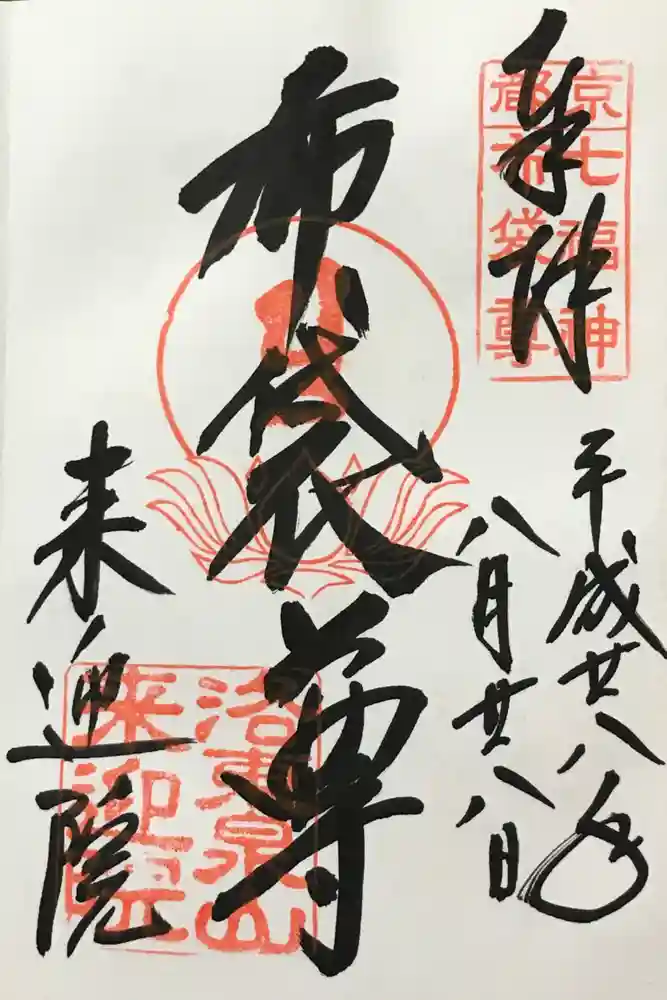 奉拝
京七福神
都布袋尊
平成廿八年
八月廿八日
布袋尊
洛東泉山
来迎院
来迎院